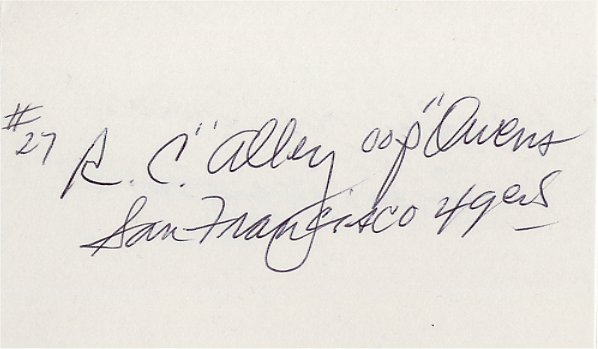 #27 R. C. "Alley oop" Owens
San Francisco 49ers